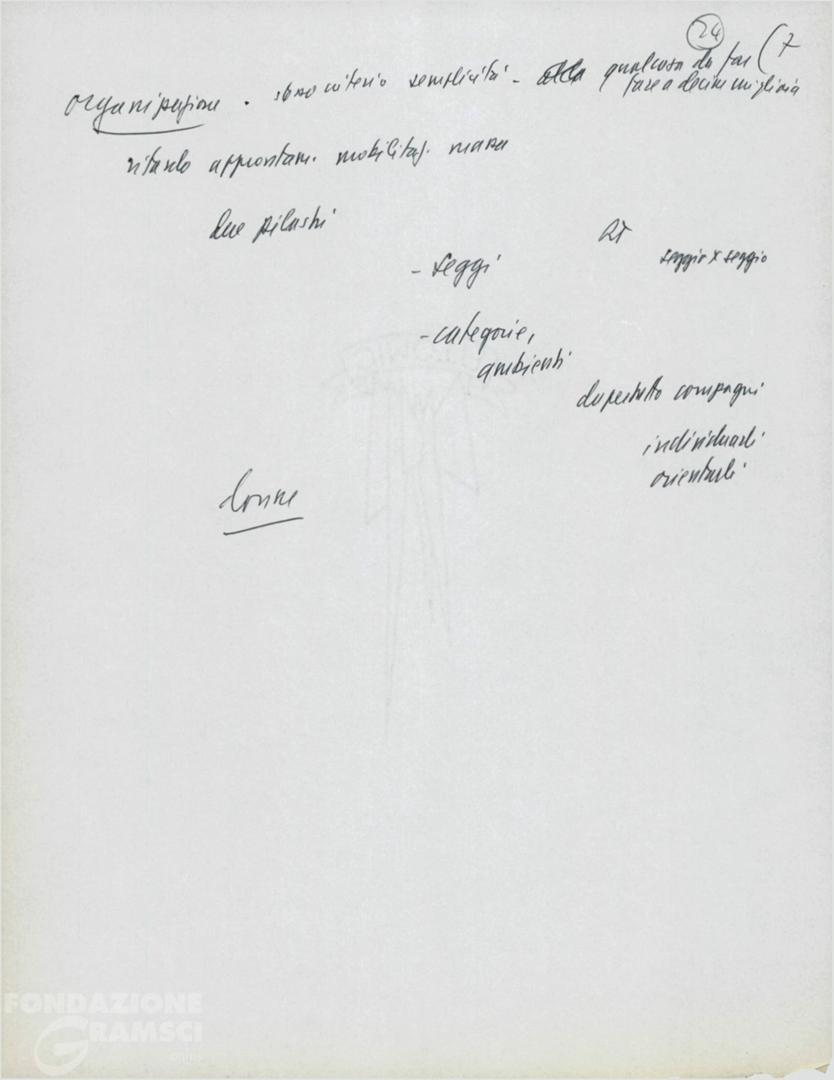 24
(7
organizzazione. stesso criterio semplicità - qualcosa da far
fare a decine migliaia
ritardo approntam. mobilitaz. massa
due pilastri
- seggi
seggio x seggio
- categorie,
ambienti
dapertutto compagni
individuarli
orientarli
donne
FONDAZIONE
GRAMSCI